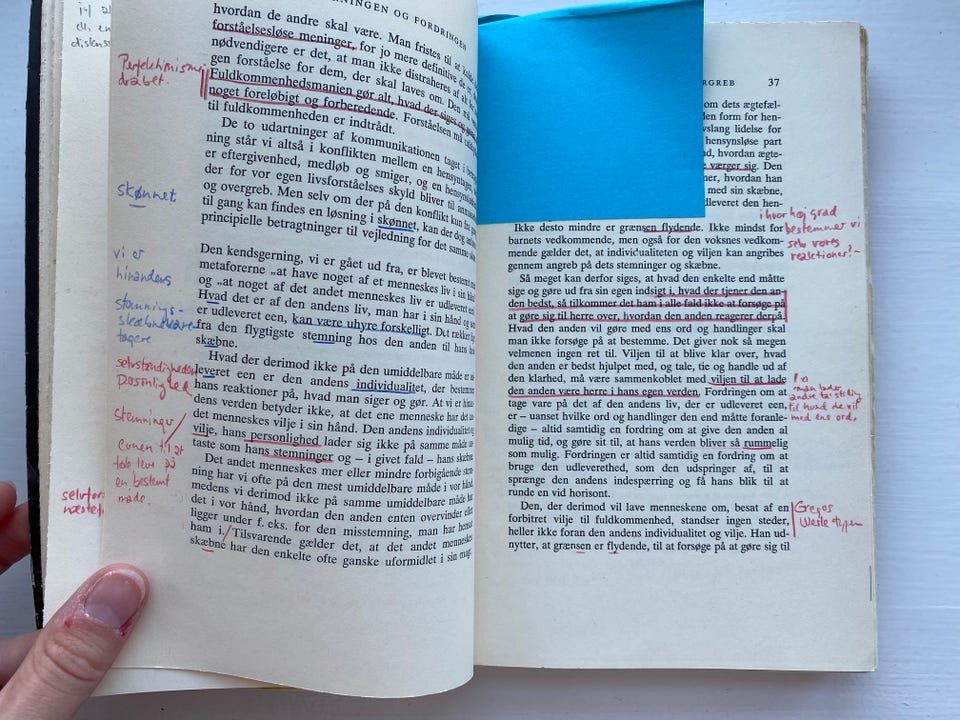 NINGEN OG FORDRINGEN
hvordan de andre skal være. Man fristes til at
forståelsesløse meninger, for jo mere definitive de er
nødvendigere er det, at man ikke distraheres af
gen forståelse for dem, der skal laves om. Den
Fuldkommenhedsmanien gør alt, hvad der siges og
noget foreløbigt og forberedende. Forståelsen må
til fuldkommenheden er indtrådt.
De to udartninger af kommunikationen taget i
ning står vi altså i konflikten mellem en hensyntagen,
er eftergivenhed, medløb og smiger, og en hensynsløshed
der for vor egen livsforståelses skyld bliver til
og overgreb. Men selv om der på den konflikt kun fra
til gang kan findes en løsning i skønnet, kan der dog
principielle betragtninger til vejledning for det samme
Den kendsgerning, vi er gået ud fra, er blevet bestemt
metaforerne „at have noget af et menneskes liv i sin
og „at noget af det andet menneskes liv er udleveret
Hvad det er af den andens liv, man har i sin hånd og
er udleveret een, kan være uhyre forskelligt. Det rækker
fra den flygtigste stemning hos den anden til hans
skæbne.
Hvad der derimod ikke på den umiddelbare måde er
leveret een er den andens individualitet, der bestemmer
hans reaktion på, hvad man siger og gør. At vi er
dens verden betyder ikke, at det ene menneske har det
det menneskes vilje i sin hånd. Den andens individualitet
vilje, hans personlighed lader sig ikke på samme måde
taste som hans stemninger og – i givet fald – hans skæbne
Det andet menneskes mer eller mindre forbigående
ning har vi ofte på den mest umiddelbare måde i vor hånd,
medens vi derimod ikke på samme umiddelbare måde har
det i vor hånd, hvordan den anden enten overvinder eller
ligger under f. eks. for den misstemning, man har hensat
ham i. Tilsvarende gælder det, at det andet menneskes
skæbne har den enkelte ofte ganske uformidlet i sin magt.
Perfektionisme
skønnet
vi er
hinandens
stemnings-
tagere
selvstændigheden
Personlighed
Stemninger
Evnen til at
leve på
en bestemt
måde.
RGREB 37
om dets ægtefæl-
den form for hen-
vslang lidelse for
hensynsløse part
d, hvordan ægte-
værger sig. Den
ner, hvordan han
med sin skæbne,
udleveret den hen-
Ikke desto mindre er grænsen flydende. Ikke mindst for
barnets vedkommende, men også for den voksnes vedkom-
mende gælder det, at individualiteten og viljen kan angribes
gennem angreb på dets stemninger og skæbne.
Så meget kan derfor siges, at hvad den enkelte end måtte
sige og gøre ud fra sin egen indsigt i, hvad der tjener den an-
den bedst, så tilkommer det ham i alle fald ikke at forsøge på
at gøre sig til herre over, hvordan den anden reagerer derpå.
Hvad den anden vil gøre med ens ord og handlinger skal
man ikke forsøge på at bestemme. Det giver nok så megen
velmenen ingen ret til. Viljen til at blive klar over, hvad
den anden er bedst hjulpet med, og tale, tie og handle ud af
den klarhed, må være sammenkoblet med viljen til at lade
den anden være herre i hans egen verden. Fordringen om at
tage vare på det af den andens liv, der er udleveret een,
er – uanset hvilke ord og handlinger den end måtte foranle-
dige – altid samtidig en fordring om at give den anden al
mulig tid, og gøre sit til, at hans verden bliver så rummelig
som mulig. Fordringen er altid samtidig en fordring om at
bruge den udleverethed, som den udspringer af, til at
sprænge den andens indespærring og få hans blik til at
runde en vid horisont.
Den, der derimod vil lave menneskene om, besat af en
forbitret vilje til fuldkommenhed, standser ingen steder,
heller ikke foran den andens individualitet og vilje. Han ud-
nytter, at grænsen er flydende, til at forsøge på at gøre sig til
i hvor høj grad
bestemmer vi
selv vores
reaktioner?
man lader
andre ta' stilling
til hvad de vil
med ens ord.
Gregos
Werle typen